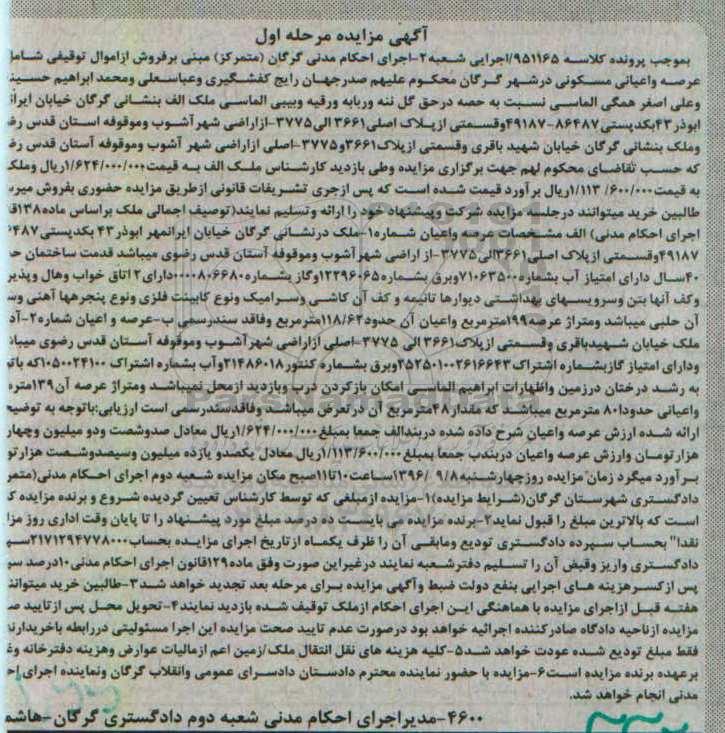 آگهی مزایده مرحله اول
بموجب پرونده کلاسه ۹۵۱۱۶۵/اجرایی شعبه۲-اجرای احکام مدنی گرگان (متمرکز) مبنی برفروش ازاموال توقیفی شامل
عرصه واعیانی مسکونی درشهر گرگان محکوم علیهم صدرجهان رایج کفشگیری وعباسعلی ومحمد ابراهیم حسینی
وعلی اصغر همگی الماسی نسبت به حصه درحق گل ننه وربابه ورقیه وبیبی الماسی ملک الف بنشانی گرگان خیابان
ابوذر۴۳بکدپستی۸۶۴۸۷-۴۹۱۸۷وقسمتی ازپلاک اصلی۳۶۶۱الی۳۷۷۵-ازاراضی شهرآشوب وموقوفه استان قدس
وملک بنشانی گرگان خیابان شهید باقری وقسمتی ازپلاک۳۶۶۱و۳۷۷۵-اصلی ازاراضی شهر آشوب وموقوفه آستان قدس
که حسب تقاضای محکوم لهم جهت برگزاری مزایده وطی بازدید کارشناس ملک الف به قیمت۱/۶۲۴/۰۰۰/۰۰۰ریال وملک
به قیمت۱/۱۱۳/۶۰۰/۰۰۰ریال برآورد قیمت شده است که پس ازجری تشریفات قانونی ازطریق مزایده حضوری بفروش
طالبین خرید میتوانند درجلسه مزایده شرکت وپیشنهاد خود را ارائه وتسلیم نمایند(توصیف اجمالی ملک براساس ماده۱۳۸
اجرای احکام مدنی) الف مشخصات عرصه واعیان شماره۱-ملک درنشانی گرگان خیابان ایرانمهر ابوذر۴۳ بکدپستی
۴۹۱۸۷وقسمتی ازپلاک اصلی۳۶۶۱الی۳۷۷۵-از اراضی شهرآشوب وموقوفه آستان قدس رضوی میباشد قدمت ساختمان
۴۰سال دارای امتیاز آب بشماره۷۱۰۶۳۵۰۰وبرق بشماره۱۲۲۹۶۰۶۵وگاز بشماره۰۰۰۰۸۰۶۶۸۰دارای۲اتاق خواب وهال
وکف آنها بتن وسرویسهای بهداشتی دیوارها تانیمه و کف آن کاشی وسرامیک ونوع کابینت فلزی ونوع پنجرهها آهنی
آن حلبی میباشد ومتراژ عرصه۱۹۹مترمربع واعیان آن حدود۱۱۸/۶۲مترمربع وفاقد سندرسمی ب-عرصه و اعیان شماره۲
ملک خیابان شهیدباقری وقسمتی ازپلاک۳۶۶۱الی ۳۷۷۵-اصلی ازاراضی شهرآشوب وموقوفه آستان قدس رضوی
ودارای امتیاز گازبشماره اشتراک۳۵۲۵۰۱۰۰۲۶۱۶۶۴۳وبرق بشماره کنتور۲۱۴۸۶۰۱۸وآب بشماره اشتراک ۱۰۵۰۰۲۴۱۰۰که
به رشد درختان درزمین واظهارات ابراهیم الماسی امکان بازکردن درب وبازدید ازمحل نمیباشد ومتراژ عرصه آن۱۳۹متر
واعیانی حدودا۸۰ مترمربع میباشد که مقدار۴۸مترمربع آن درتعرض میباشد وفاقدسندرسمی است ارزیابی:باتوجه به
ارائه شده ارزش عرصه واعیان شرح داده شده دربندالف جمعا بمبلغ۱/۶۲۴/۰۰۰/۰۰۰ریال معادل صدوشصت ودو میلیون وچهار
هزارتومان وارزش عرصه واعیان دربندب جمعا بمبلغ۱/۱۱۳/۶۰۰/۰۰۰ریال معادل یکصدو یازده میلیون وسیصدوشصت
برآورد میگرد زمان مزایده روزچهارشنبه۹/۸ /۱۳۹۶ساعت۱۰تا۱۱صبح مکان مزایده شعبه دوم اجرای احکام مدنی(
دادگستری شهرستان گرگان(شرایط مزایده)۱-مزایده ازمبلغی که توسط کارشناس تعیین گردیده شروع و برنده مزایده
است که بالاترین مبلغ را قبول نماید۲-برنده مزایده می بایست ده درصد مبلغ مورد پیشنهاد را تا پایان وقت اداری روز
نقدا" بحساب سپرده دادگستری تودیع ومابقی آن را ظرف یکماه ازتاریخ اجرای مزایده بحساب۲۱۷۱۲۹۴۷۷۸۰۰۰
دادگستری واریز وقبض آن را تسلیم دفترشعبه نمایند درغیراین صورت وفق ماده۱۲۹قانون اجرای احکام مدنی۱۰درصد
پس ازکسرهزینه های اجرایی بنفع دولت ضبط وآگهی مزایده برای مرحله بعد تجدید خواهد شد۳-طالبین خرید
هفته قبل ازاجرای مزایده با هماهنگی این اجرای احکام ازملک توقیف شده بازدید نمایند۴-تحویل محل پس ازتایید
مزایده ازناحیه دادگاه صادرکننده اجرائیه خواهد بود درصورت عدم تایید صحت مزایده این اجرا مسئولیتی دررابطه
فقط مبلغ تودیع شده عودت خواهد شد۵-کلیه هزینه های نقل انتقال ملک/زمین اعم ازمالیات عوارض وهزینه دفترخانه
برعهده برنده مزایده است۶-مزایده با حضور نماینده محترم دادستان دادسرای عمومی وانقلاب گرگان ونماینده اجرای
مدنی انجام خواهد شد.
۴۶۰۰-مدیراجرای احکام مدنی شعبه دوم دادگستری گرگان
ParsNamadData